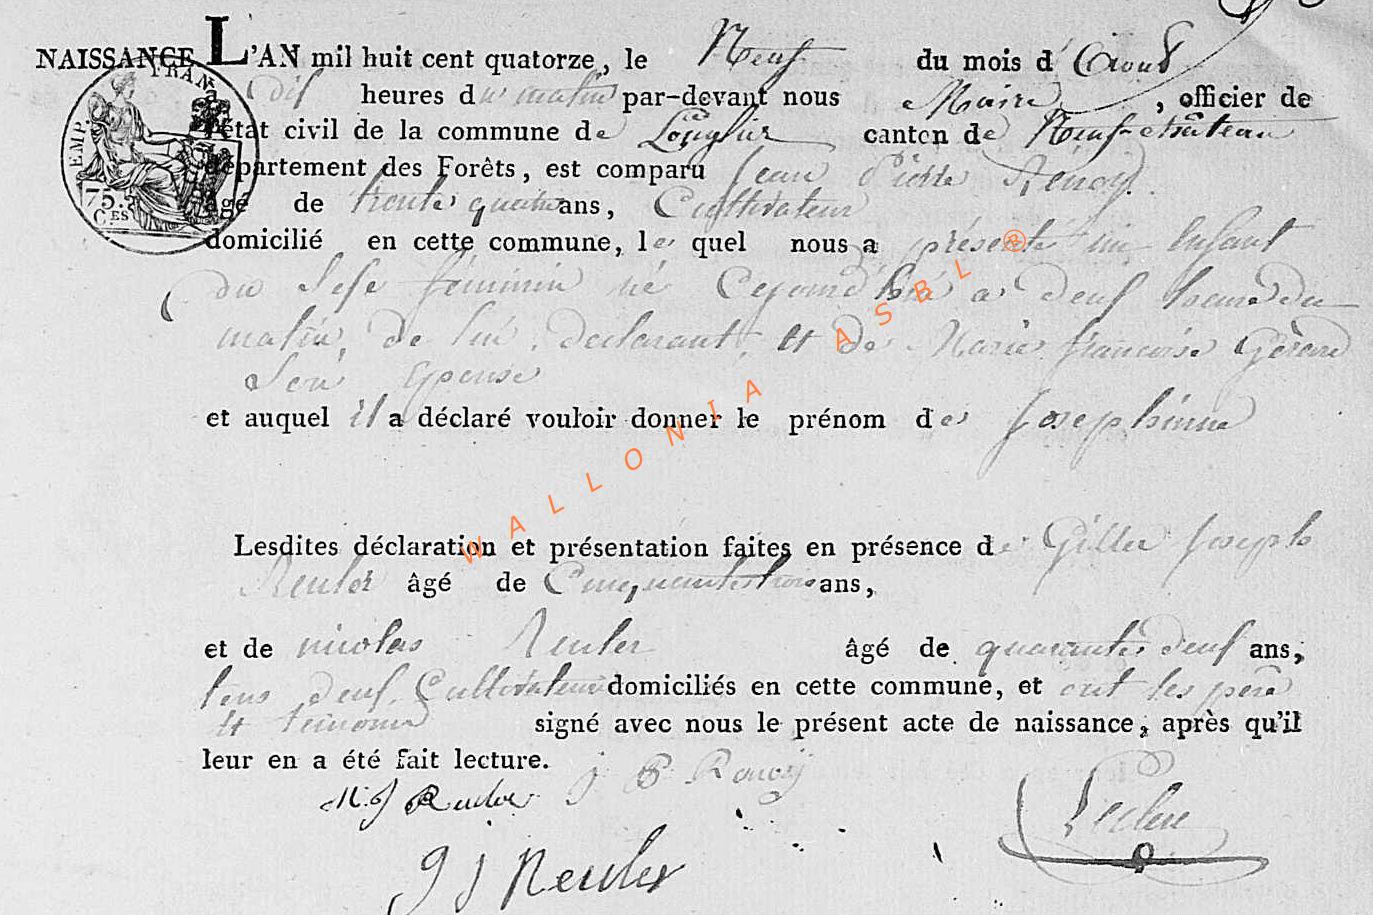 NAISSANCE L'AN mil huit cent quatorze, le Neuf du mois d'Aout
à Dix heures du matin par-devant nous Maire, officier de
l'état civil de la commune de Longlier canton de Neufchâteau
département des Forêts, est comparu Jean Pierre Renoy.
âgé de trente quatre ans, Cultivateur
domicilié en cette commune, le quel nous a présenté un Enfant
du Sexe féminin né Cejourd'hui a deux heures du
matin, de lui, déclarant, et de Marie françoise Gérard
Son Epouse
et auquel il a déclaré vouloir donner le prénom de Josephinne
Lesdites déclaration et présentation faites en présence de Gilles Joseph
Reuler âgé de Cinquante trois ans,
et de nicolas Reuler âgé de quarante deux ans,
tous deux Cultivateurs domiciliés en cette commune, et ont les père
et temoins signé avec nous le présent acte de naissance, après qu'il
leur en a été fait lecture.
J P Renoy
N. J Reuler
Leclere
g J Reuler
EMP. FRAN
75. CES
WALLONIA ASBL ®